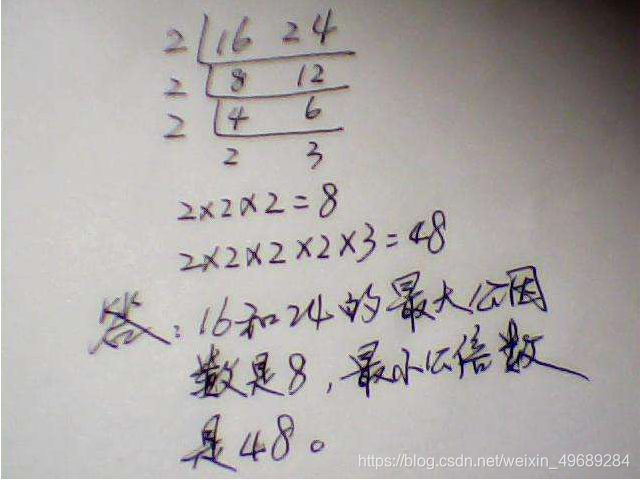 2 16 24
2 8 12
2 4 6
2 3
2×2×2=8
2×2×2×2×3=48
答：16和24的最大公因
数是8，最小公倍数
是48。
https://blog.csdn.net/weixin_49689284